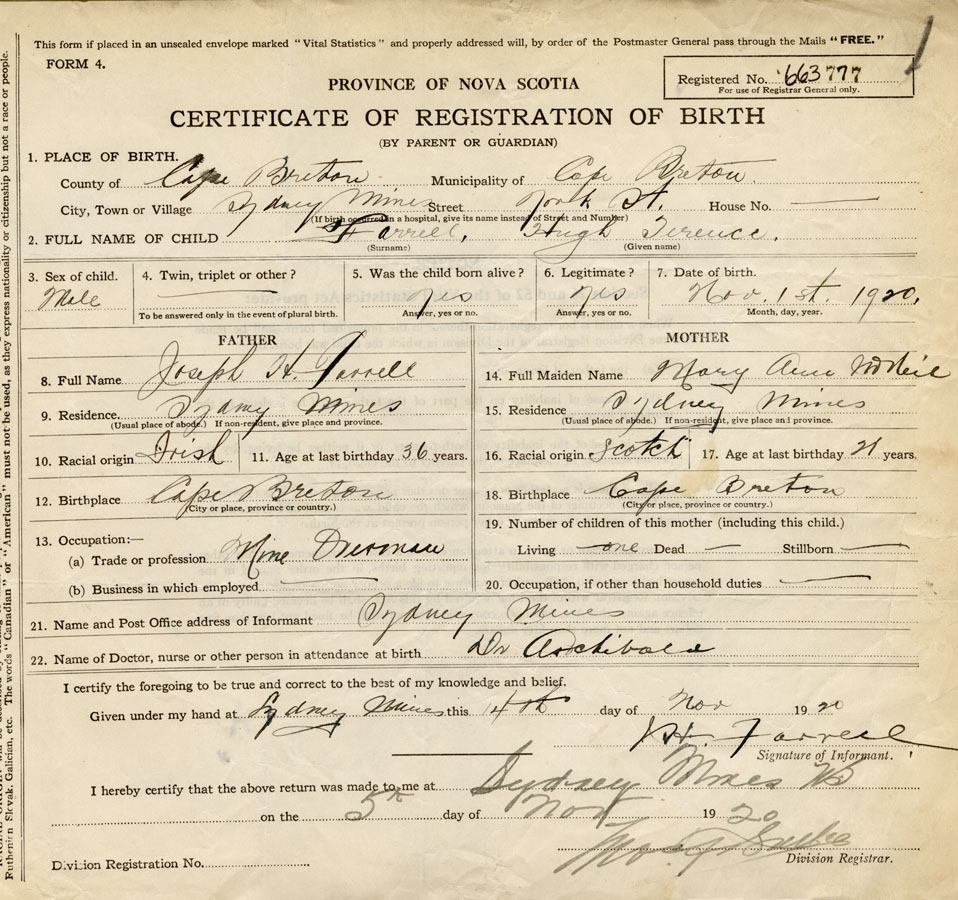 This form if placed in an unsealed envelope marked "Vital Statistics" and properly addressed will, by order of the Postmaster General pass through the Mails "FREE."
FORM 4.
Registered No. 663777
For use of Registrar General only.
PROVINCE OF NOVA SCOTIA
CERTIFICATE OF REGISTRATION OF BIRTH
(BY PARENT OR GUARDIAN)
1. PLACE OF BIRTH.
County of Cape Breton Municipality of Cape Breton
City, Town or Village Sydney Mines Street St. House No.
(If birth occurred in a hospital, give its name instead of Street and Number)
2. FULL NAME OF CHILD Farrell, Hugh Terence.
(Surname) (Given name)
3. Sex of child. 4. Twin, triplet or other? 5. Was the child born alive? 6. Legitimate? 7. Date of birth.
Male yes yes Nov. 1st. 1920.
To be answered only in the event of plural birth. Answer, yes or no. Answer, yes or no. Month, day, year.
FATHER
8. Full Name Joseph H. Farrell
9. Residence Sydney Mines
(Usual place of abode.) If non-resident, give place and province.
10. Racial origin Irish 11. Age at last birthday 36 years.
12. Birthplace Cape Breton
(City or place, province or country.)
13. Occupation:—
(a) Trade or profession Mine Overman
(b) Business in which employed
MOTHER
14. Full Maiden Name Mary Ann McNeil
15. Residence Sydney Mines
(Usual place of abode.) If non-resident, give place and province.
16. Racial origin Scotch 17. Age at last birthday 21 years.
18. Birthplace Cape Breton
(City or place, province or country.)
19. Number of children of this mother (including this child.)
Living one Dead — Stillborn —
20. Occupation, if other than household duties —
21. Name and Post Office address of Informant Sydney Mines
22. Name of Doctor, nurse or other person in attendance at birth Dr Archibald
I certify the foregoing to be true and correct to the best of my knowledge and belief.
Given under my hand at Sydney Mines this 4th day of Nov 1920
J.H. Farrell
Signature of Informant.
I hereby certify that the above return was made to me at Sydney Mines
on the 5th day of Nov 1920
Division Registrar.
Division Registration No.
Ruthenian, Slovak, Galician, etc. The words "Canadian" or "American" must not be used, as they express nationality or citizenship but not a race or people.